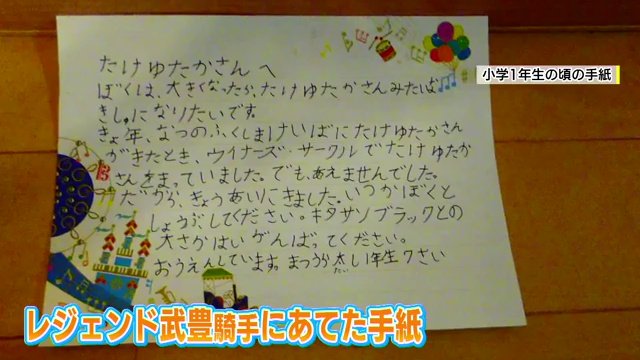 小学1年生の頃の手紙
たけゆたかさんへ
ぼくは、大きくなったら、たけゆたかさんみたいな
きしゅになりたいです。
きょ年、なつのふくしまけいばにたけゆたかさん
がきたとき、ウイナーズ・サークルでたけゆたか
さんをまっていました。でも、あえませんでした。
だから、きょうあいにきました。いつかぼくと
しょうぶしてください。キタサンブラックとの
大さかはいがんばってください。
おうえんしています。まつうら太い1年生7さい
レジェンド武豊騎手にあてた手紙